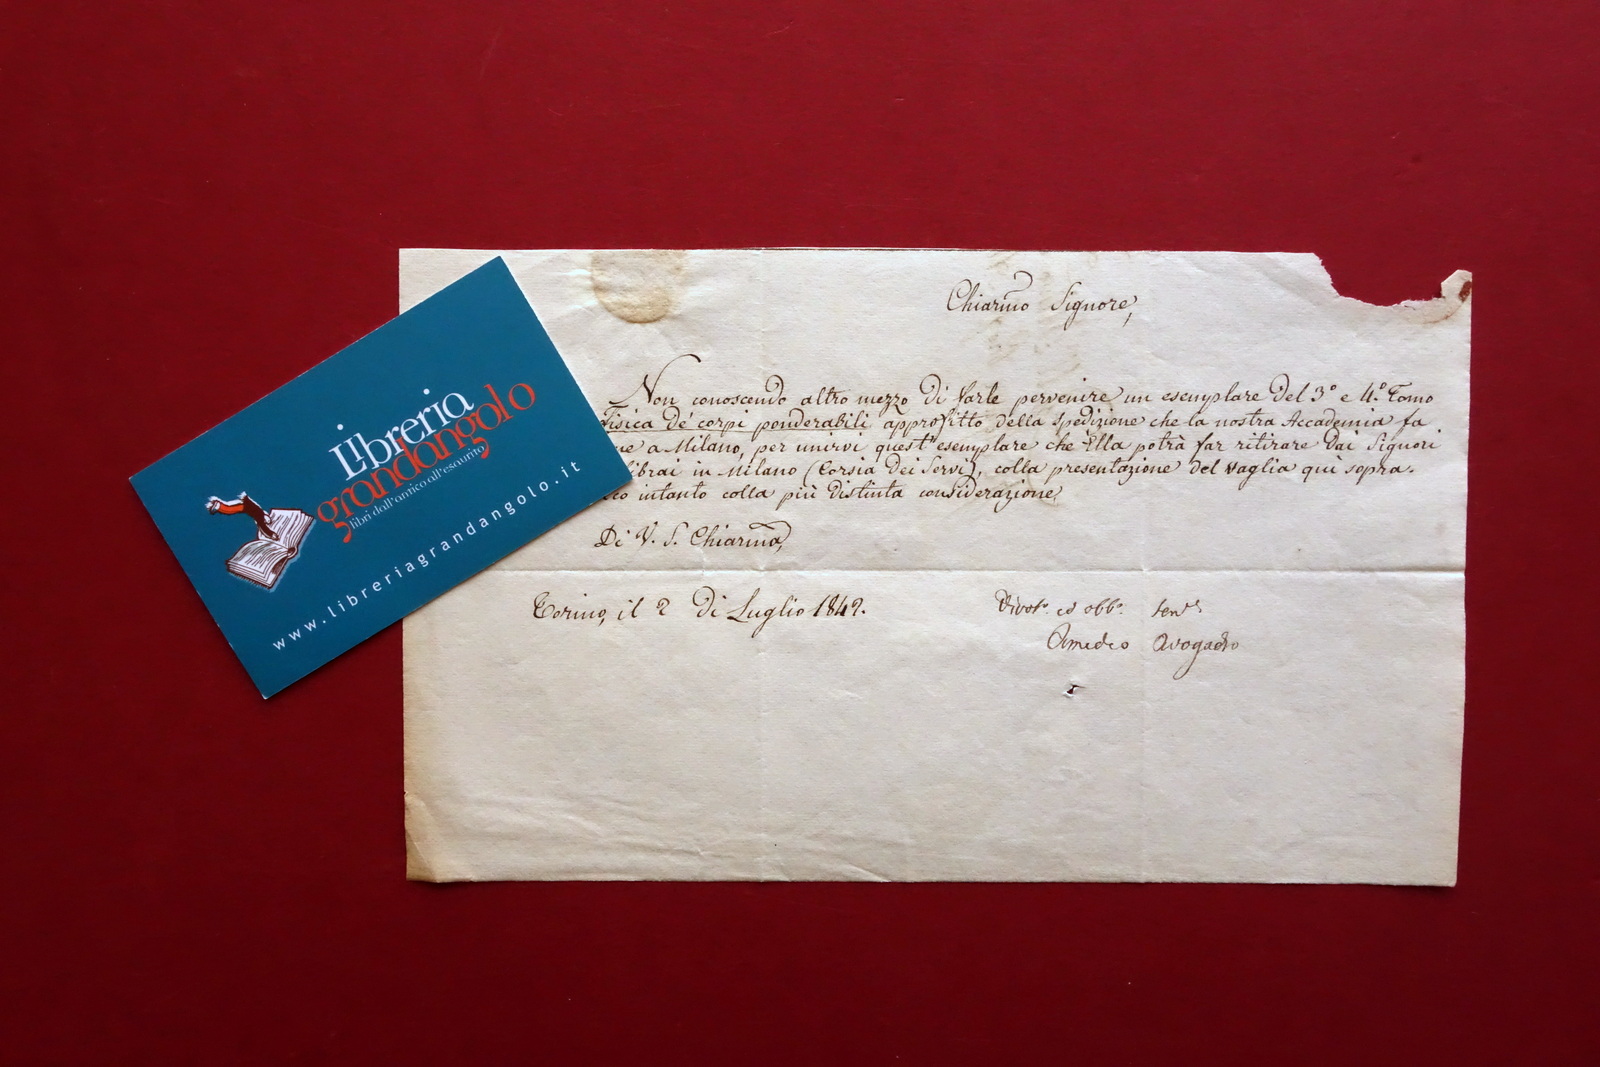 Libreria
grandangolo
libri dall'antico all'esaurito
www.libreriagrandangolo.it
Chiarmo Signore,
Non conoscendo altro mezzo di farle pervenire un esemplare del 3° e 4.° Tomo
Fisica de' corpi ponderabili approfitto della spedizione che la nostra Accademia fa
a Milano, per unirvi quest' esemplare che Ella potrà far ritirare dai Signori
librai in Milano (Corsia dei Servi), colla presentazione del vaglia qui sopra.
intanto colla più distinta considerazione
Di V. S. Chiarma,
Torino, il 2 di Luglio 1842.
Divot.° ed obb.°
Amedeo Avogadro